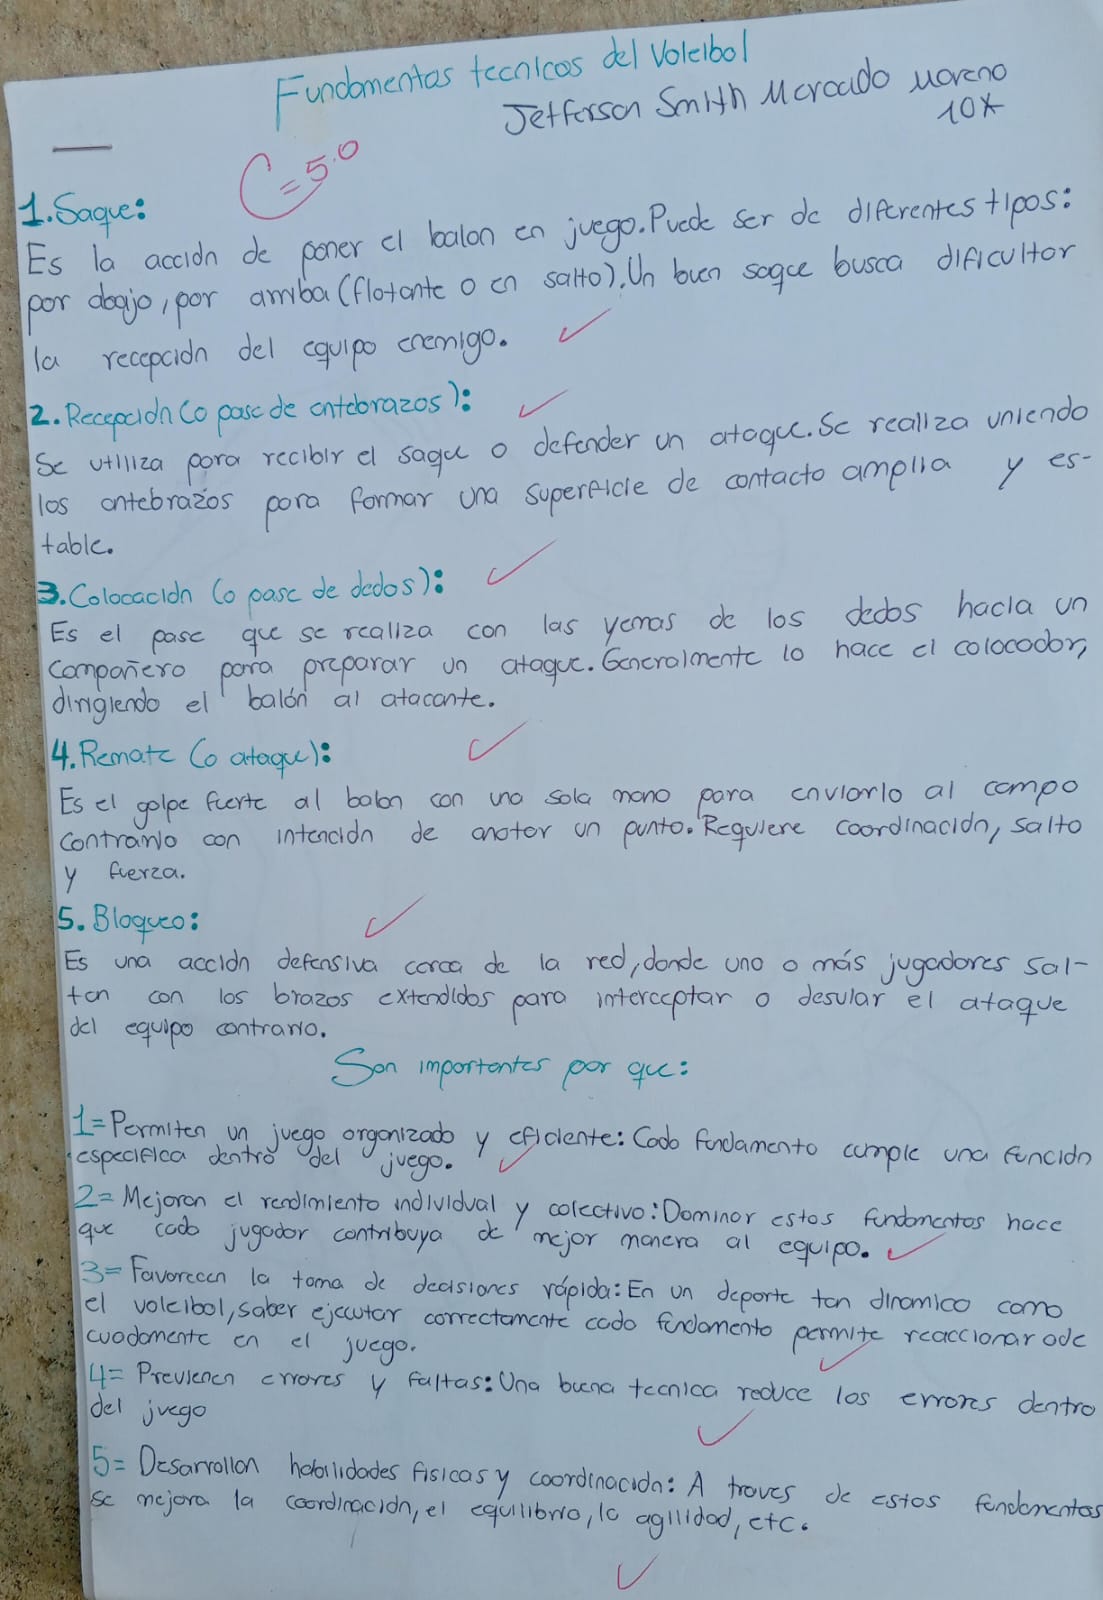 Fundamentos tecnicos del Voleibol
Jefferson Smith Mercado Moreno
10*
C=5.0
1.Saque:
Es la acción de poner el balon en juego.Puede ser de diferentes tipos:
por abajo, por arriba (flotante o en salto).Un buen saque busca dificultar
la recepción del equipo enemigo.
2.Recepción (o pase de antebrazos):
Se utiliza para recibir el saque o defender un ataque.Se realiza uniendo
los antebrazos para formar una superficie de contacto amplia y es-
table.
3.Colocación (o pase de dedos):
Es el pase que se realiza con las yemas de los dedos hacia un
compañero para preparar un ataque.Generalmente lo hace el colocador,
dirigiendo el balón al atacante.
4.Remate (o ataque):
Es el golpe fuerte al balon con una sola mano para enviarlo al campo
contrario con intención de anotar un punto.Requiere coordinación, salto
y fuerza.
5.Bloqueo:
Es una acción defensiva cerca de la red, donde uno o más jugadores sal-
tan con los brazos extendidos para interceptar o desular el ataque
del equipo contrario.
Son importantes por que:
1=Permiten un juego organizado y eficiente: Cada fundamento cumple una función
especifica dentro del juego.
2=Mejoran el rendimiento individual y colectivo:Dominar estos fundamentos hace
que cada jugador contribuya de mejor manera al equipo.
3=Favorecen la toma de decisiones rápida:En un deporte tan dinamico como
el voleibol, saber ejecutar correctamente cada fundamento permite reaccionar ade
cuadamente en el juego.
4=Previenen errores y faltas:Una buena tecnica reduce los errores dentro
del juego
5=Desarrollan habilidades fisicas y coordinación: A traves de estos fundamentos
se mejora la coordinación, el equilibrio, la agilidad, etc.